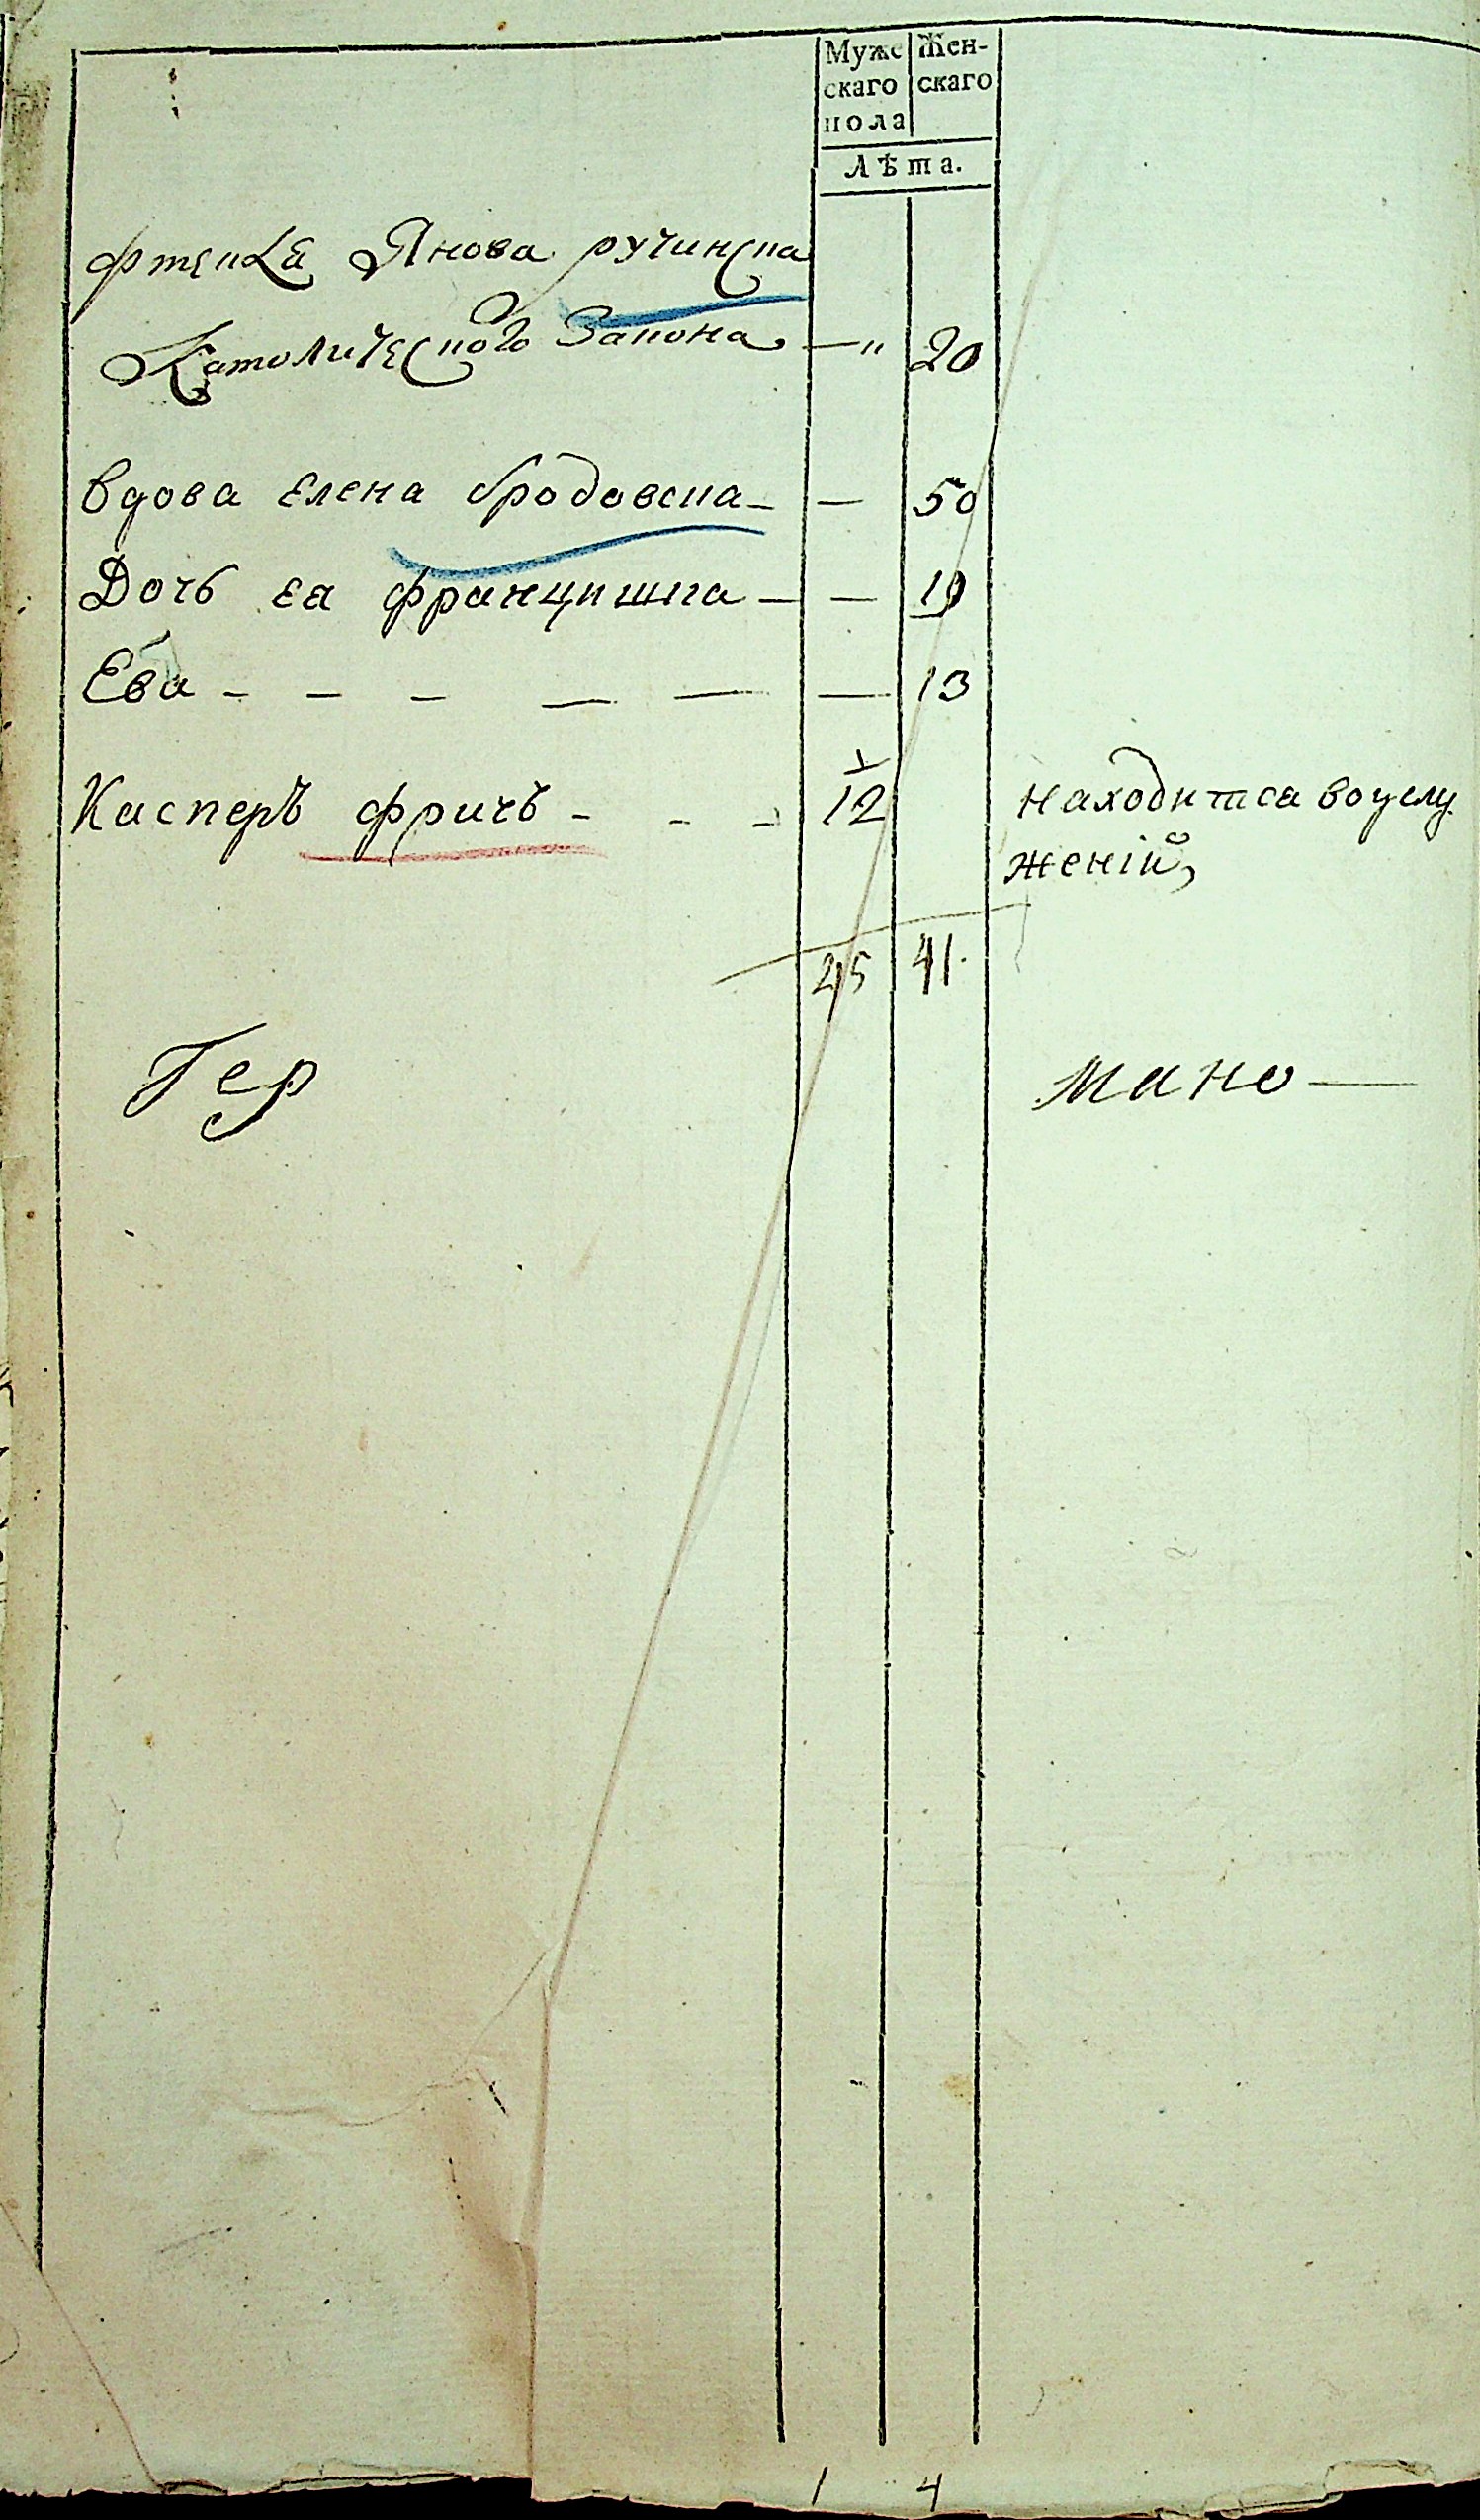 Муже Жен-
скаго скаго
пола
Лѣта.
Янова ручинска
Католического Закона — " 20
Вдова Елена бродовска - — 50
Дочь ея францишка — — 19
Ева - — — — — — 13
Касперъ фричъ - - - 12 находится воуслу
женіи,
45 41.
Гер мано —
1 4